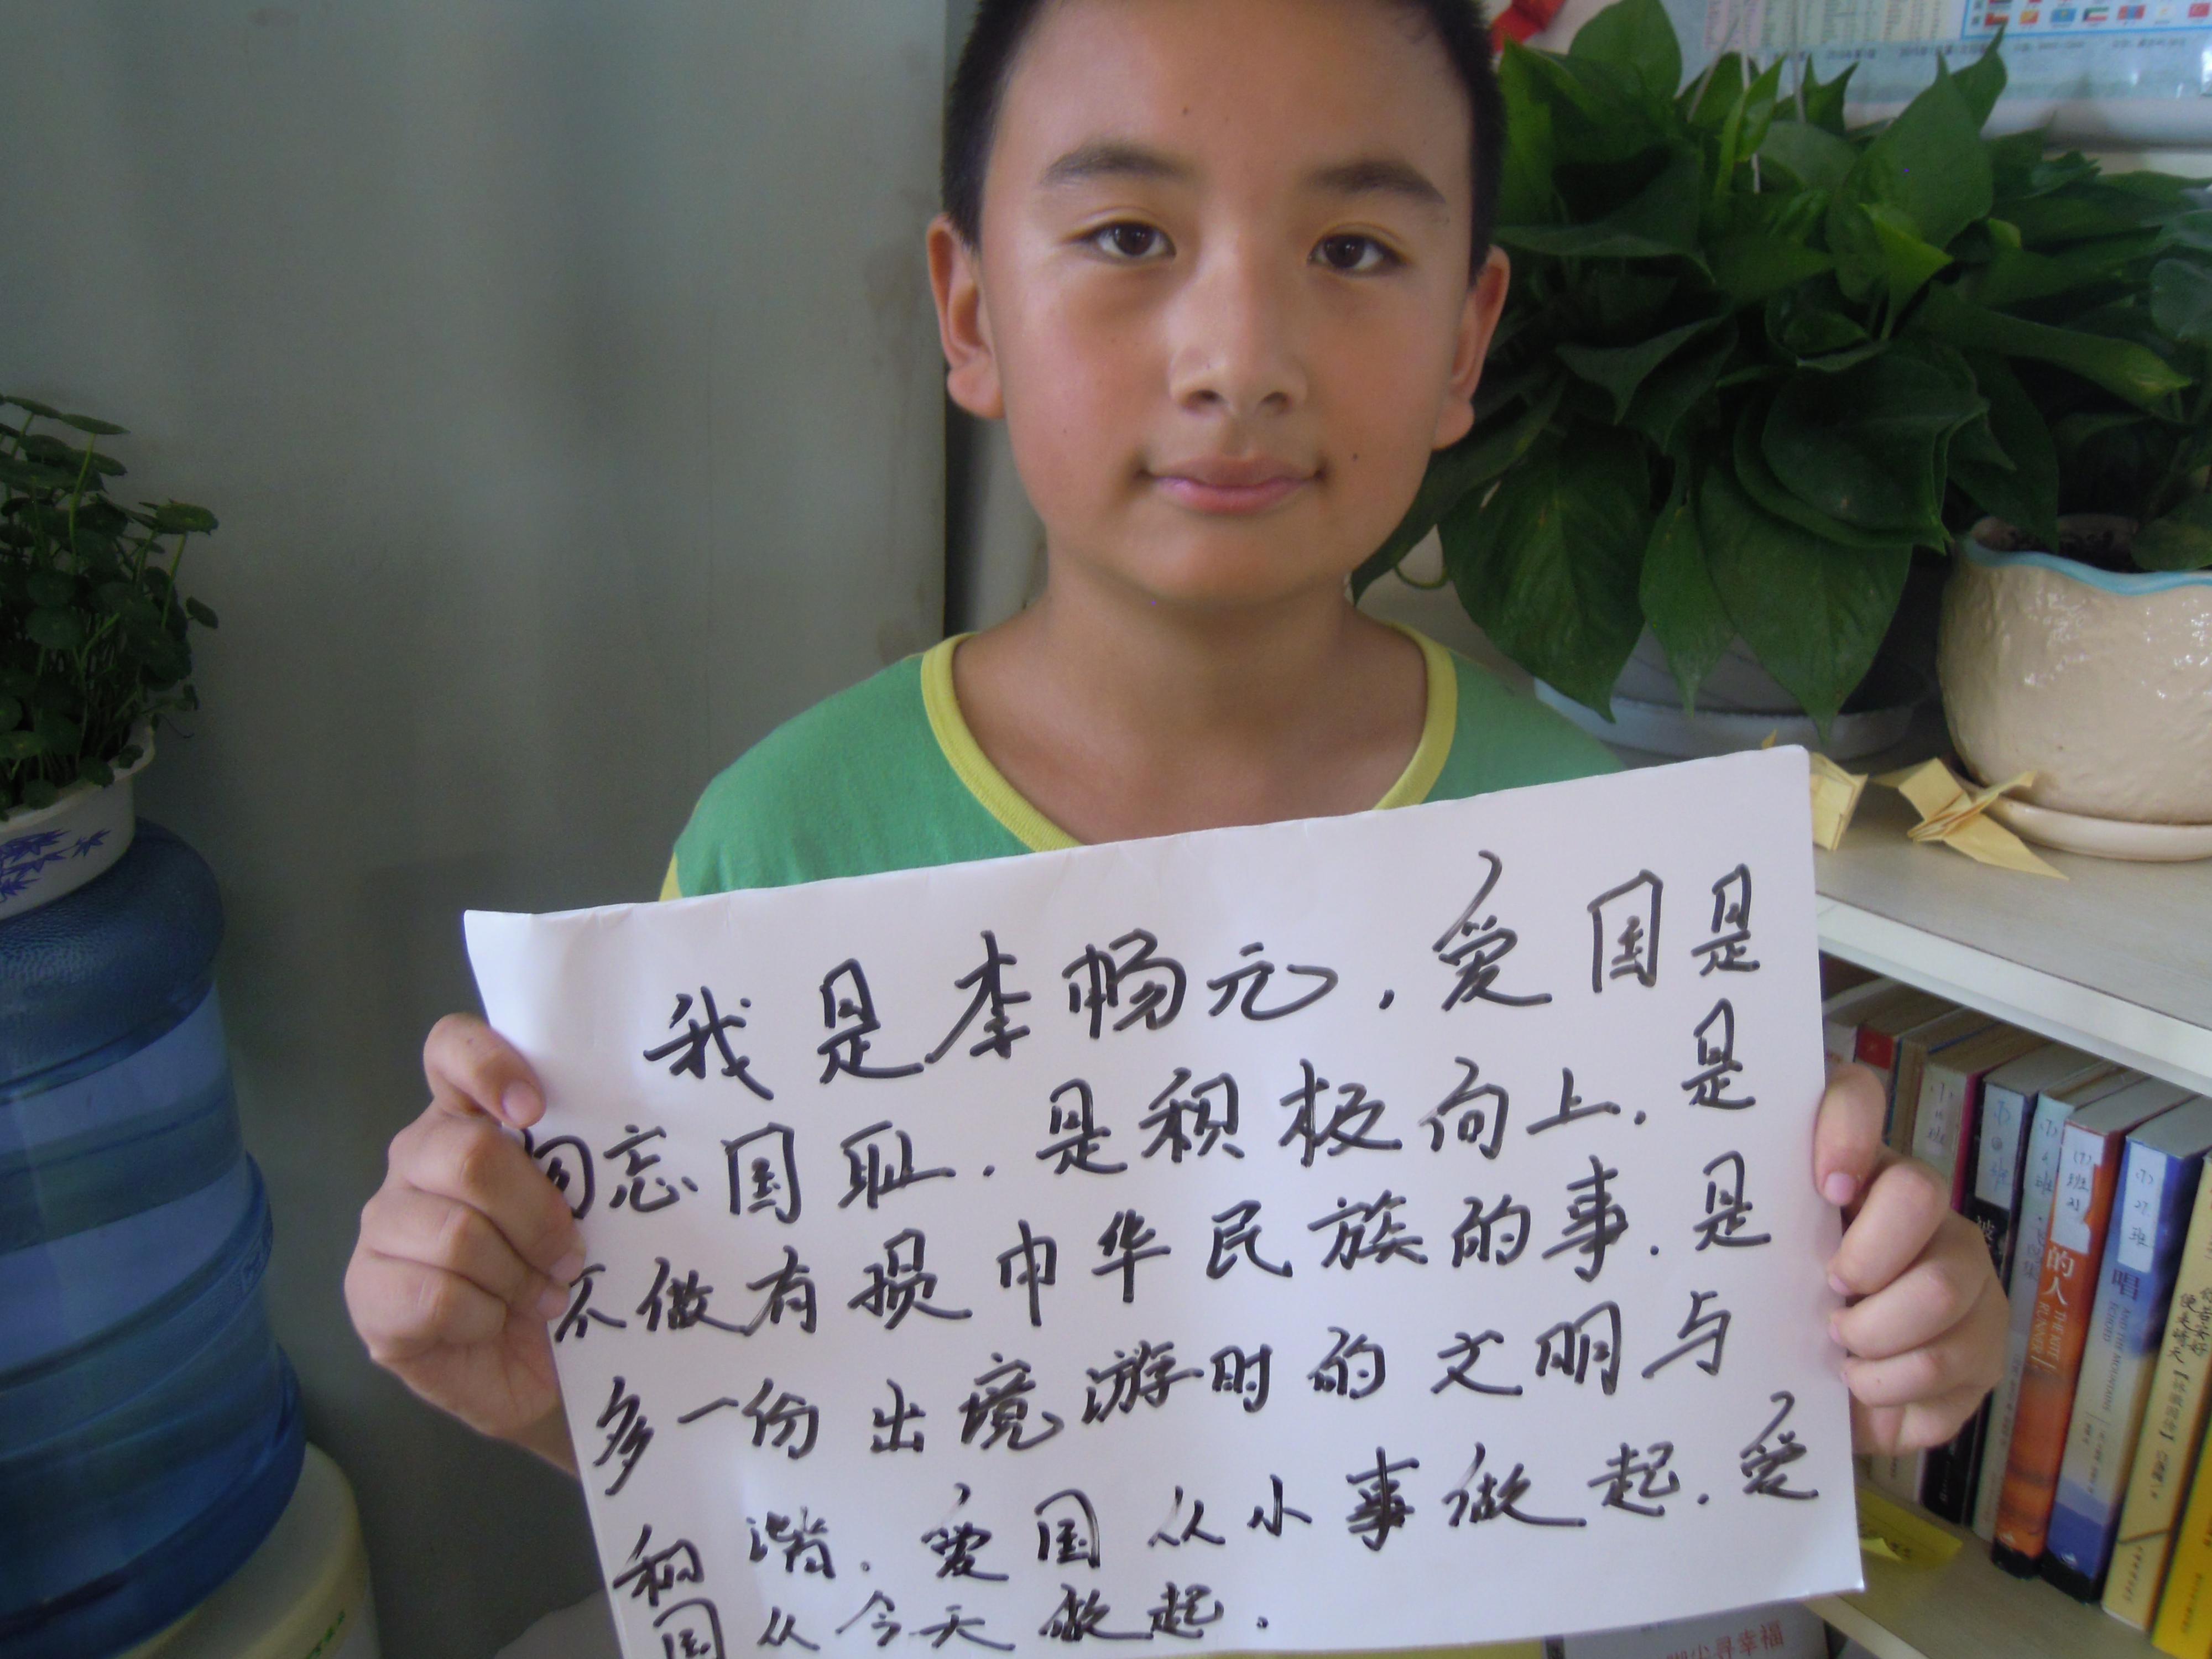 我是李畅元.爱国是
勿忘国耻.是积极向上.是
不做有损中华民族的事.是
多一份出境游时的文明与
和谐.爱国从小事做起.爱
国从今天做起.
的人
THE KITE RUNNER
唱
班
寻幸福